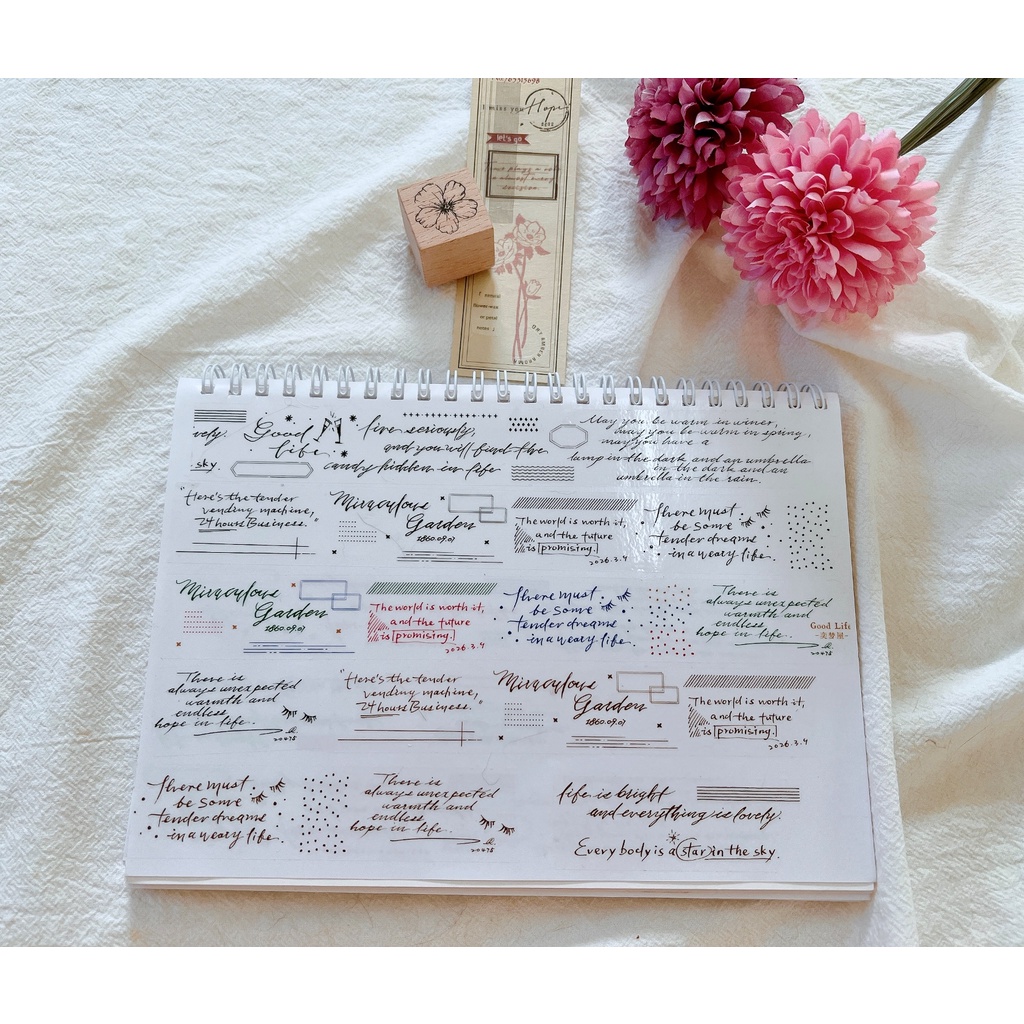 I miss you
Hope
let's go
vely.
Good
life.
sky.
live seriously,
and you will find the
candy hidden in life
May you be warm in winer,
may you be warm in spring,
may you have a
lamp in the dark and an umbrella
in the dark and an
umbrella in the rain.
"Here's the tender
vending machine,
24 hours Business."
Miraculous
Garden
1860.09.01
The world is worth it,
and the future
is promising.
2026.3.4
there must
be some
tender dreams
in a weary life.
Miraculous
Garden
1860.09.01
The world is worth it,
and the future
is promising.
2026.3.4
there must
be some
tender dreams
in a weary life.
There is
always unexpected
warmth and
endless
hope in life.
20475
Good Life
There is
always unexpected
warmth and
endless
hope in life.
20475
"Here's the tender
vending machine,
24 hours Business."
Miraculous
Garden
1860.09.01
The world is worth it,
and the future
is promising.
2026.3.4
there must
be some
tender dreams
in a weary life.
There is
always unexpected
warmth and
endless
hope in life.
20475
life is bright
and everything is lovely.
Every body is a star in the sky.